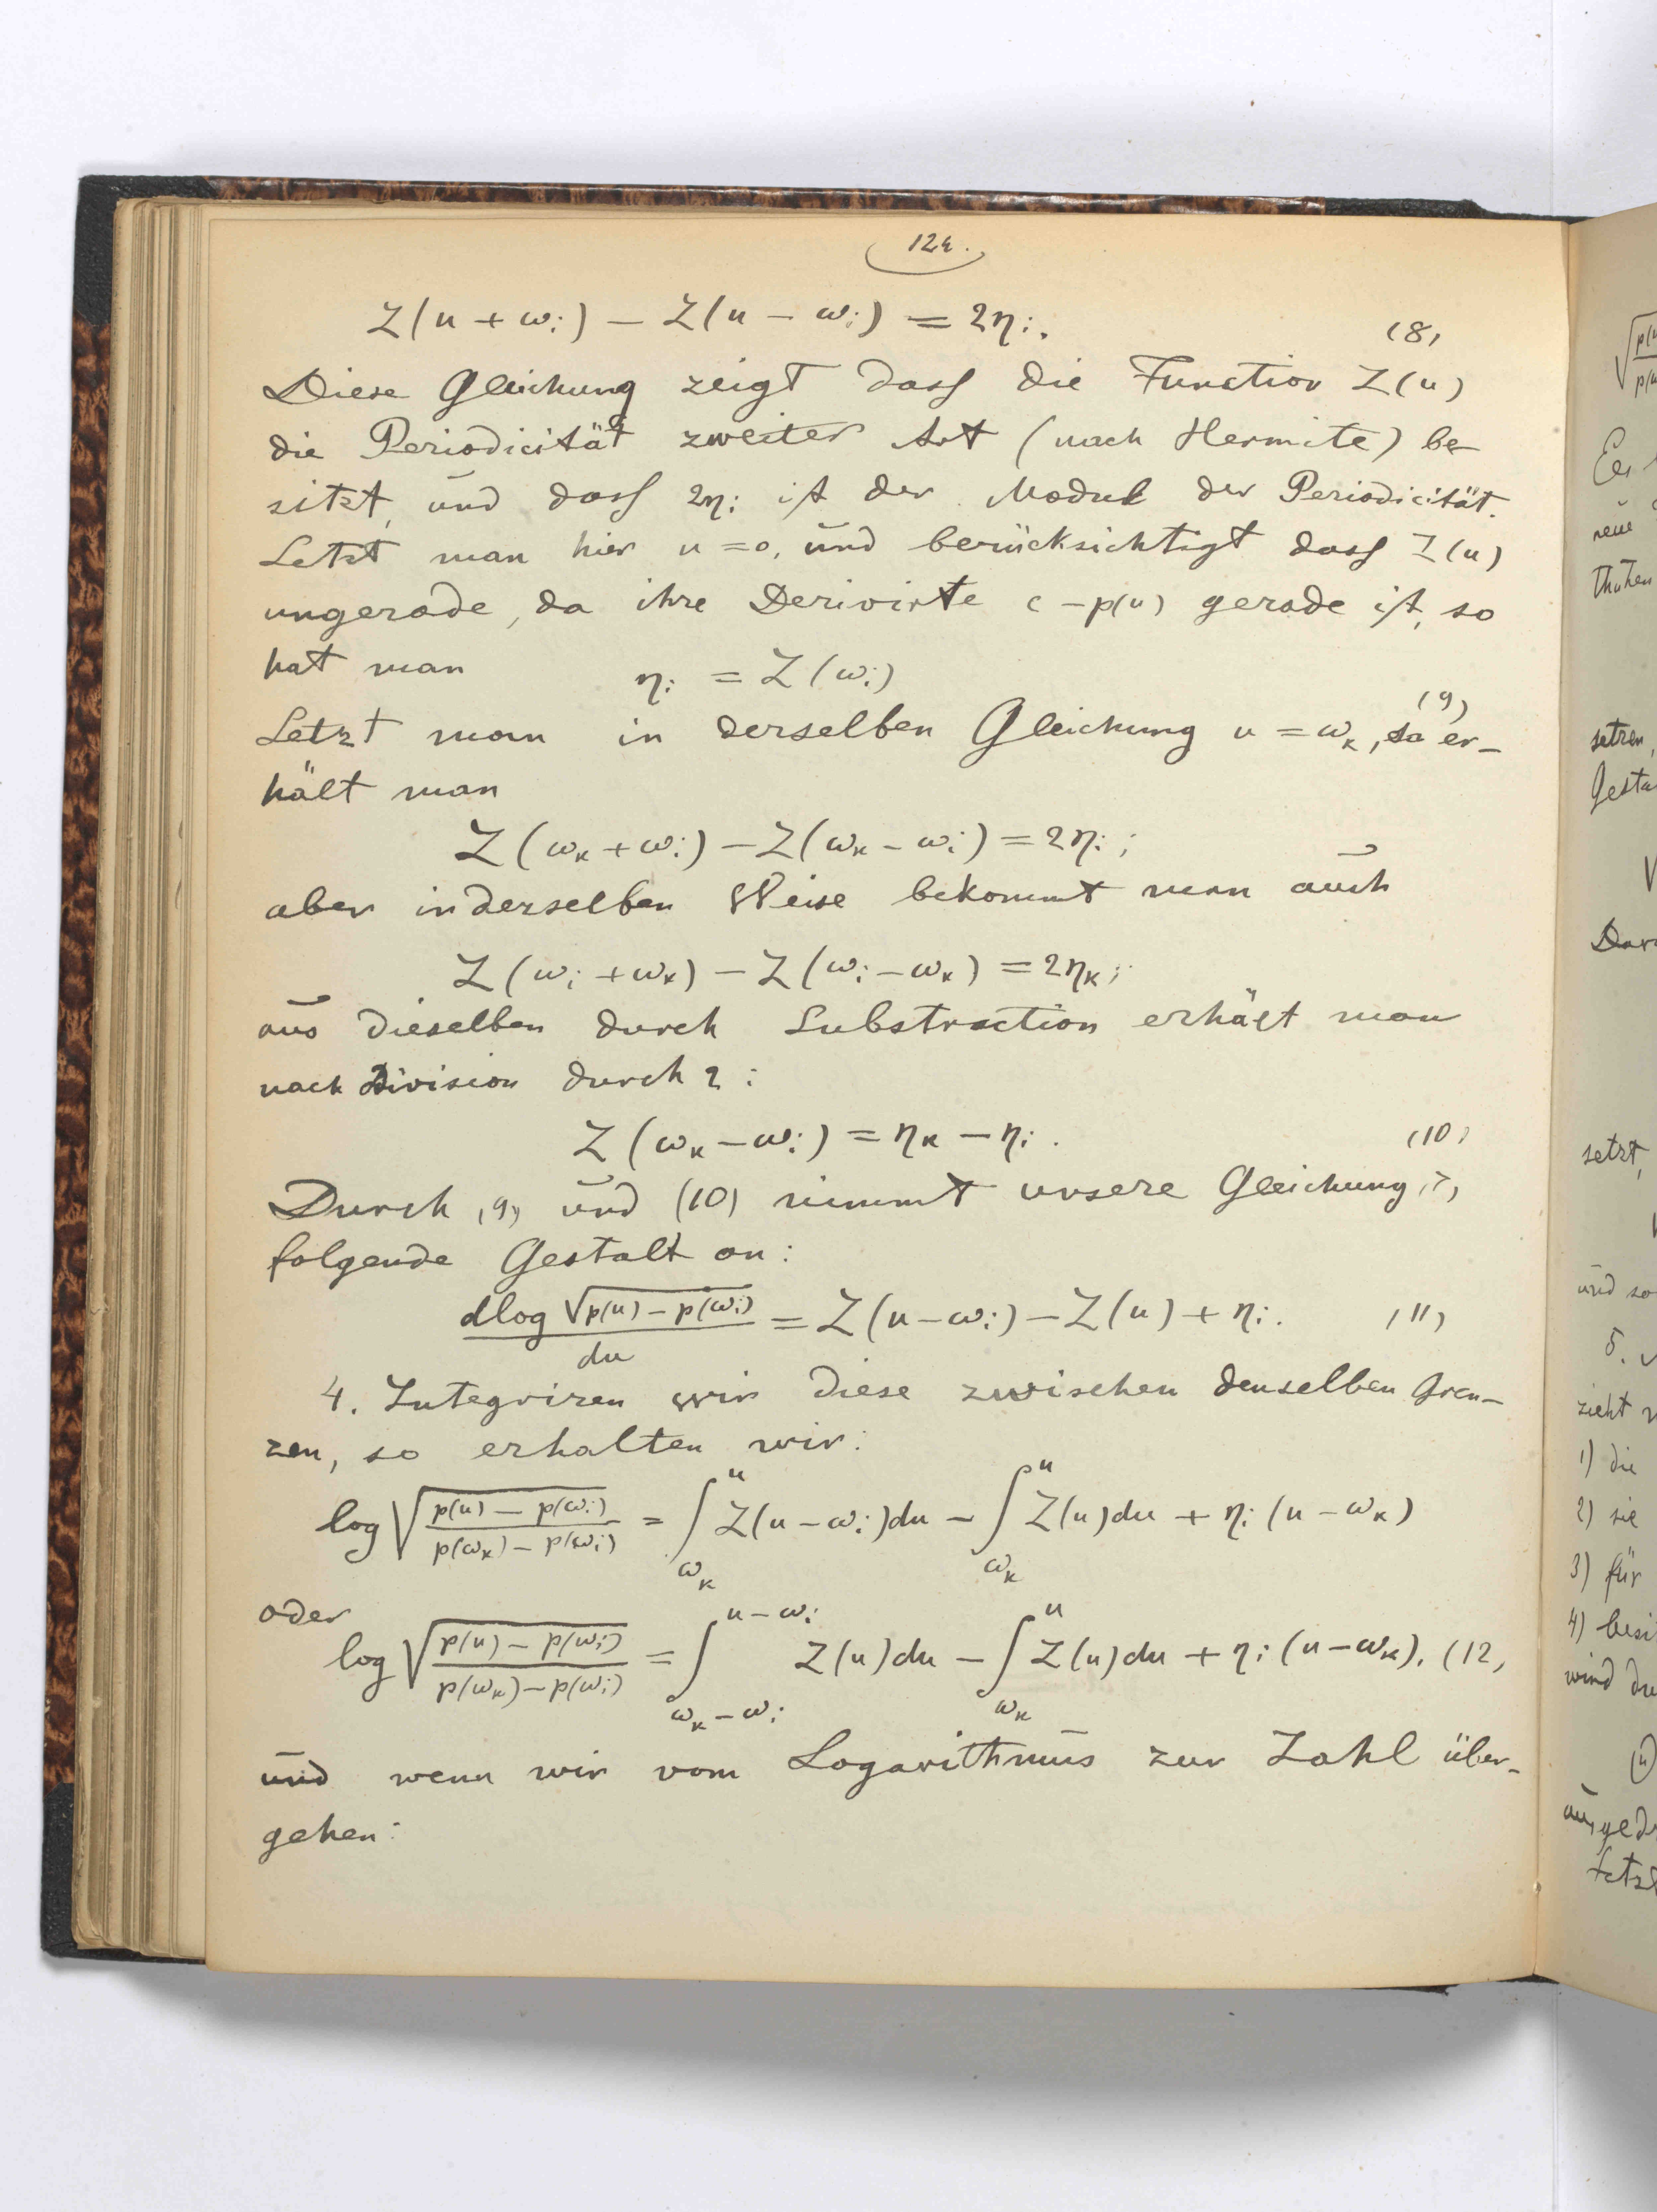 124.
Z(u + ωi) − Z(u − ωi) = 2ηi. (8)
Diese Gleichung zeigt dass die Function Z(u)
die Periodicität zweiter Art (nach Hermite) be-
sitzt, und dass 2ηi ist der Modul der Periodicität.
Setzt man hier u = 0, und berücksichtigt dass Z(u)
ungerade, da ihre Derivirte c − p(u) gerade ist, so
hat man ηi = Z(ωi) (9)
Setzt man in derselben Gleichung u = ωk, so er-
hält man
Z(ωk + ωi) − Z(ωk − ωi) = 2ηi ;
aber in derselben Weise bekommt man auch
Z(ωi + ωk) − Z(ωi − ωk) = 2ηk ;
aus dieselben durch Substraction erhält man
nach Division durch 2 :
Z(ωk − ωi) = ηk − ηi . (10)
Durch (9) und (10) nimmt unsere Gleichung (7)
folgende Gestalt an :
dlog √(p(u) − p(ωi)) / du = Z(u − ωi) − Z(u) + ηi . (11)
4. Integriren wir diese zwischen denselben Gren-
zen, so erhalten wir :
log √((p(u) − p(ωi)) / (p(ωk) − p(ωi))) = ∫_{ωk}^{u} Z(u − ωi)du − ∫_{ωk}^{u} Z(u)du + ηi (u − ωk)
oder
log √((p(u) − p(ωi)) / (p(ωk) − p(ωi))) = ∫_{ωk − ωi}^{u − ωi} Z(u)du − ∫_{ωk}^{u} Z(u)du + ηi (u − ωk). (12)
und wenn wir vom Logarithmus zur Zahl über-
gehen :
neue
setzen,
setzt,
und so
5.
zieht
1) die
2) sie
3) für
4) besi
wird du